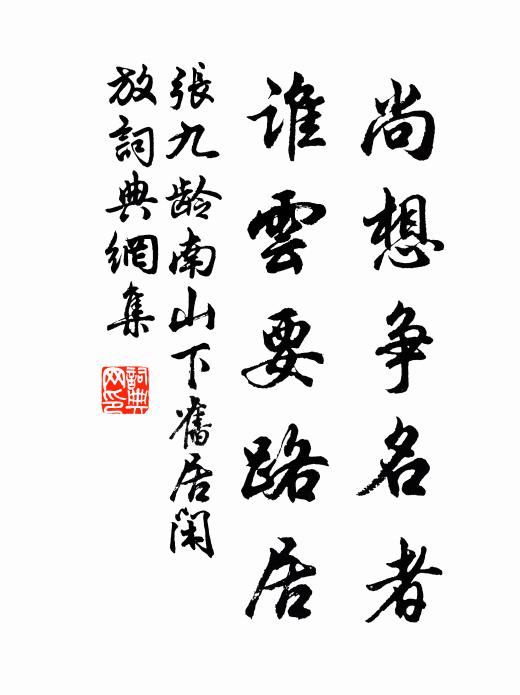 尚想争名者
誰雲要路居
張九龄南山下舊居閑
放詞典網集
詞典網印